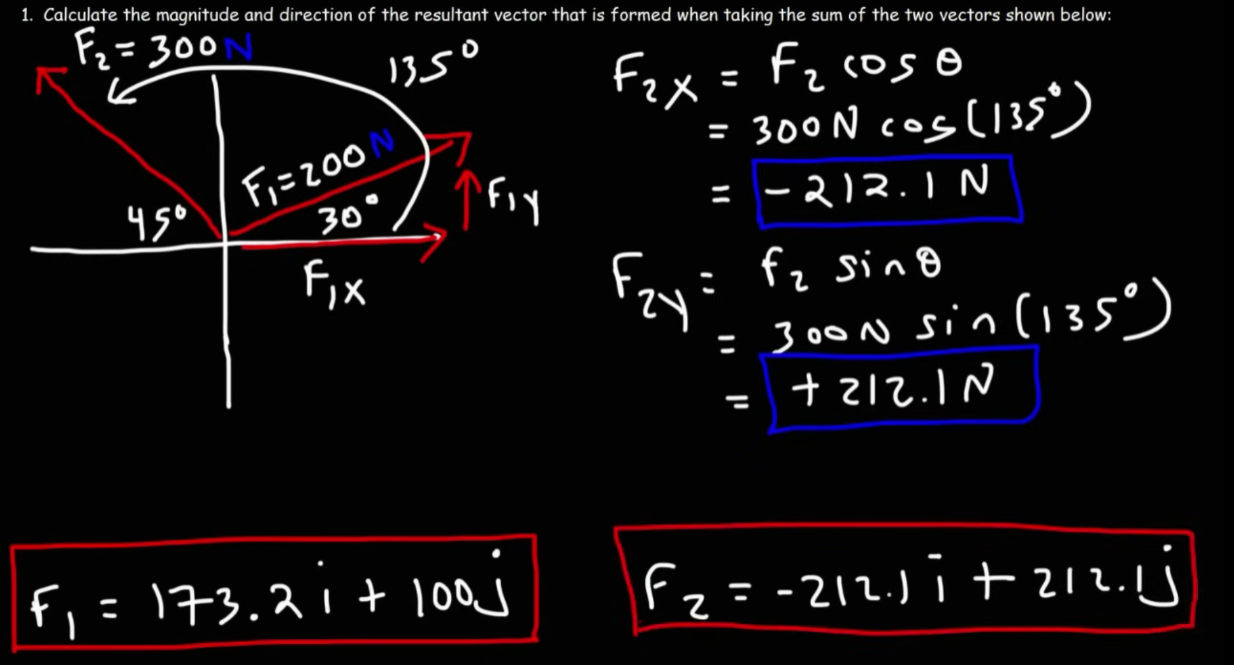 1. Calculate the magnitude and direction of the resultant vector that is formed when taking the sum of the two vectors shown below:
F₂ = 300 N
135°
F₁ = 200 N
45°
30°
F₁y
F₁x
F₂x = F₂ cos θ
= 300 N cos (135°)
= -212.1 N
F₂y = f₂ sin θ
= 300 N sin (135°)
= +212.1 N
F₁ = 173.2 i + 100 j
F₂ = -212.1 i + 212.1 j